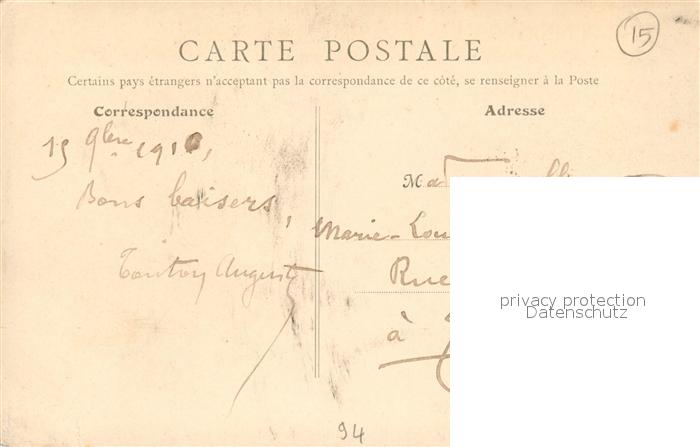 15
CARTE POSTALE
Certains pays étrangers n'acceptant pas la correspondance de ce côté, se renseigner à la Poste
Correspondance
Adresse
15 9bre 1910,
Bons baisers,
Tonton August
M
Marie-Lou
Rue
à
privacy protection
Datenschutz
94